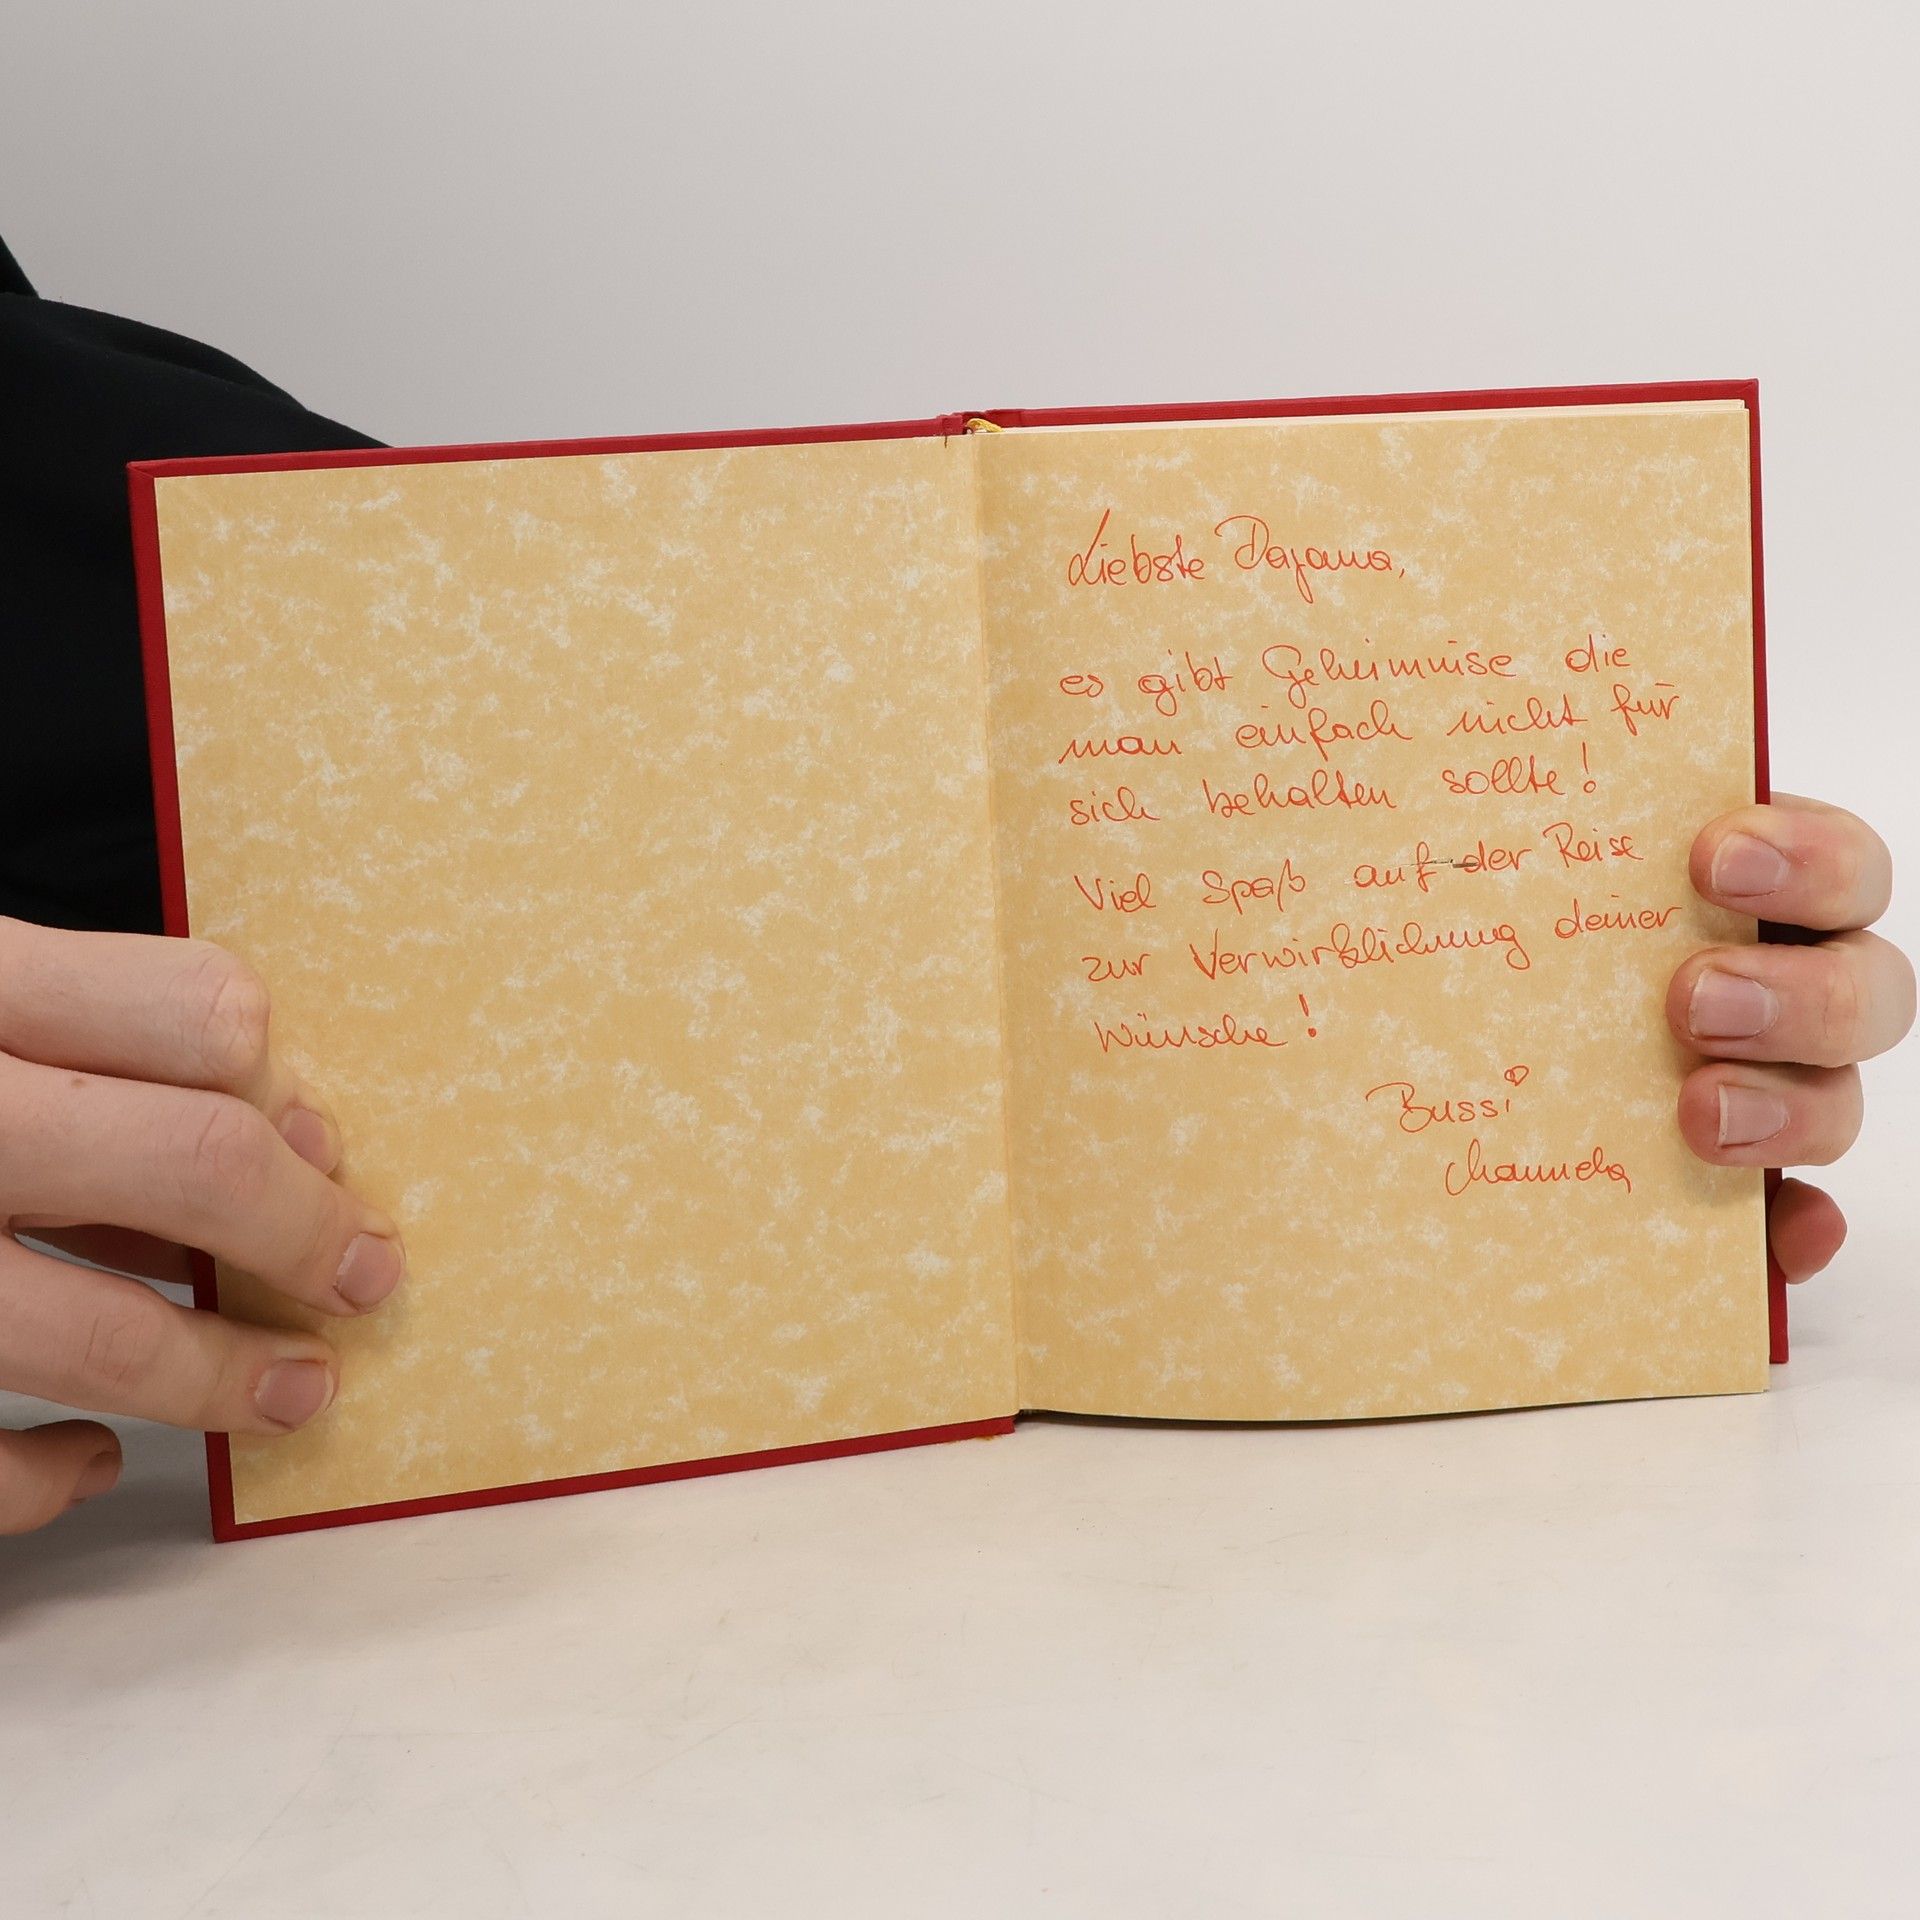 Liebste Dajana,
es gibt Geheimnise die
man einfach nicht für
sich behalten sollte!
Viel Spaß auf der Reise
zur Verwirklichung deiner
Wünsche!
Bussi